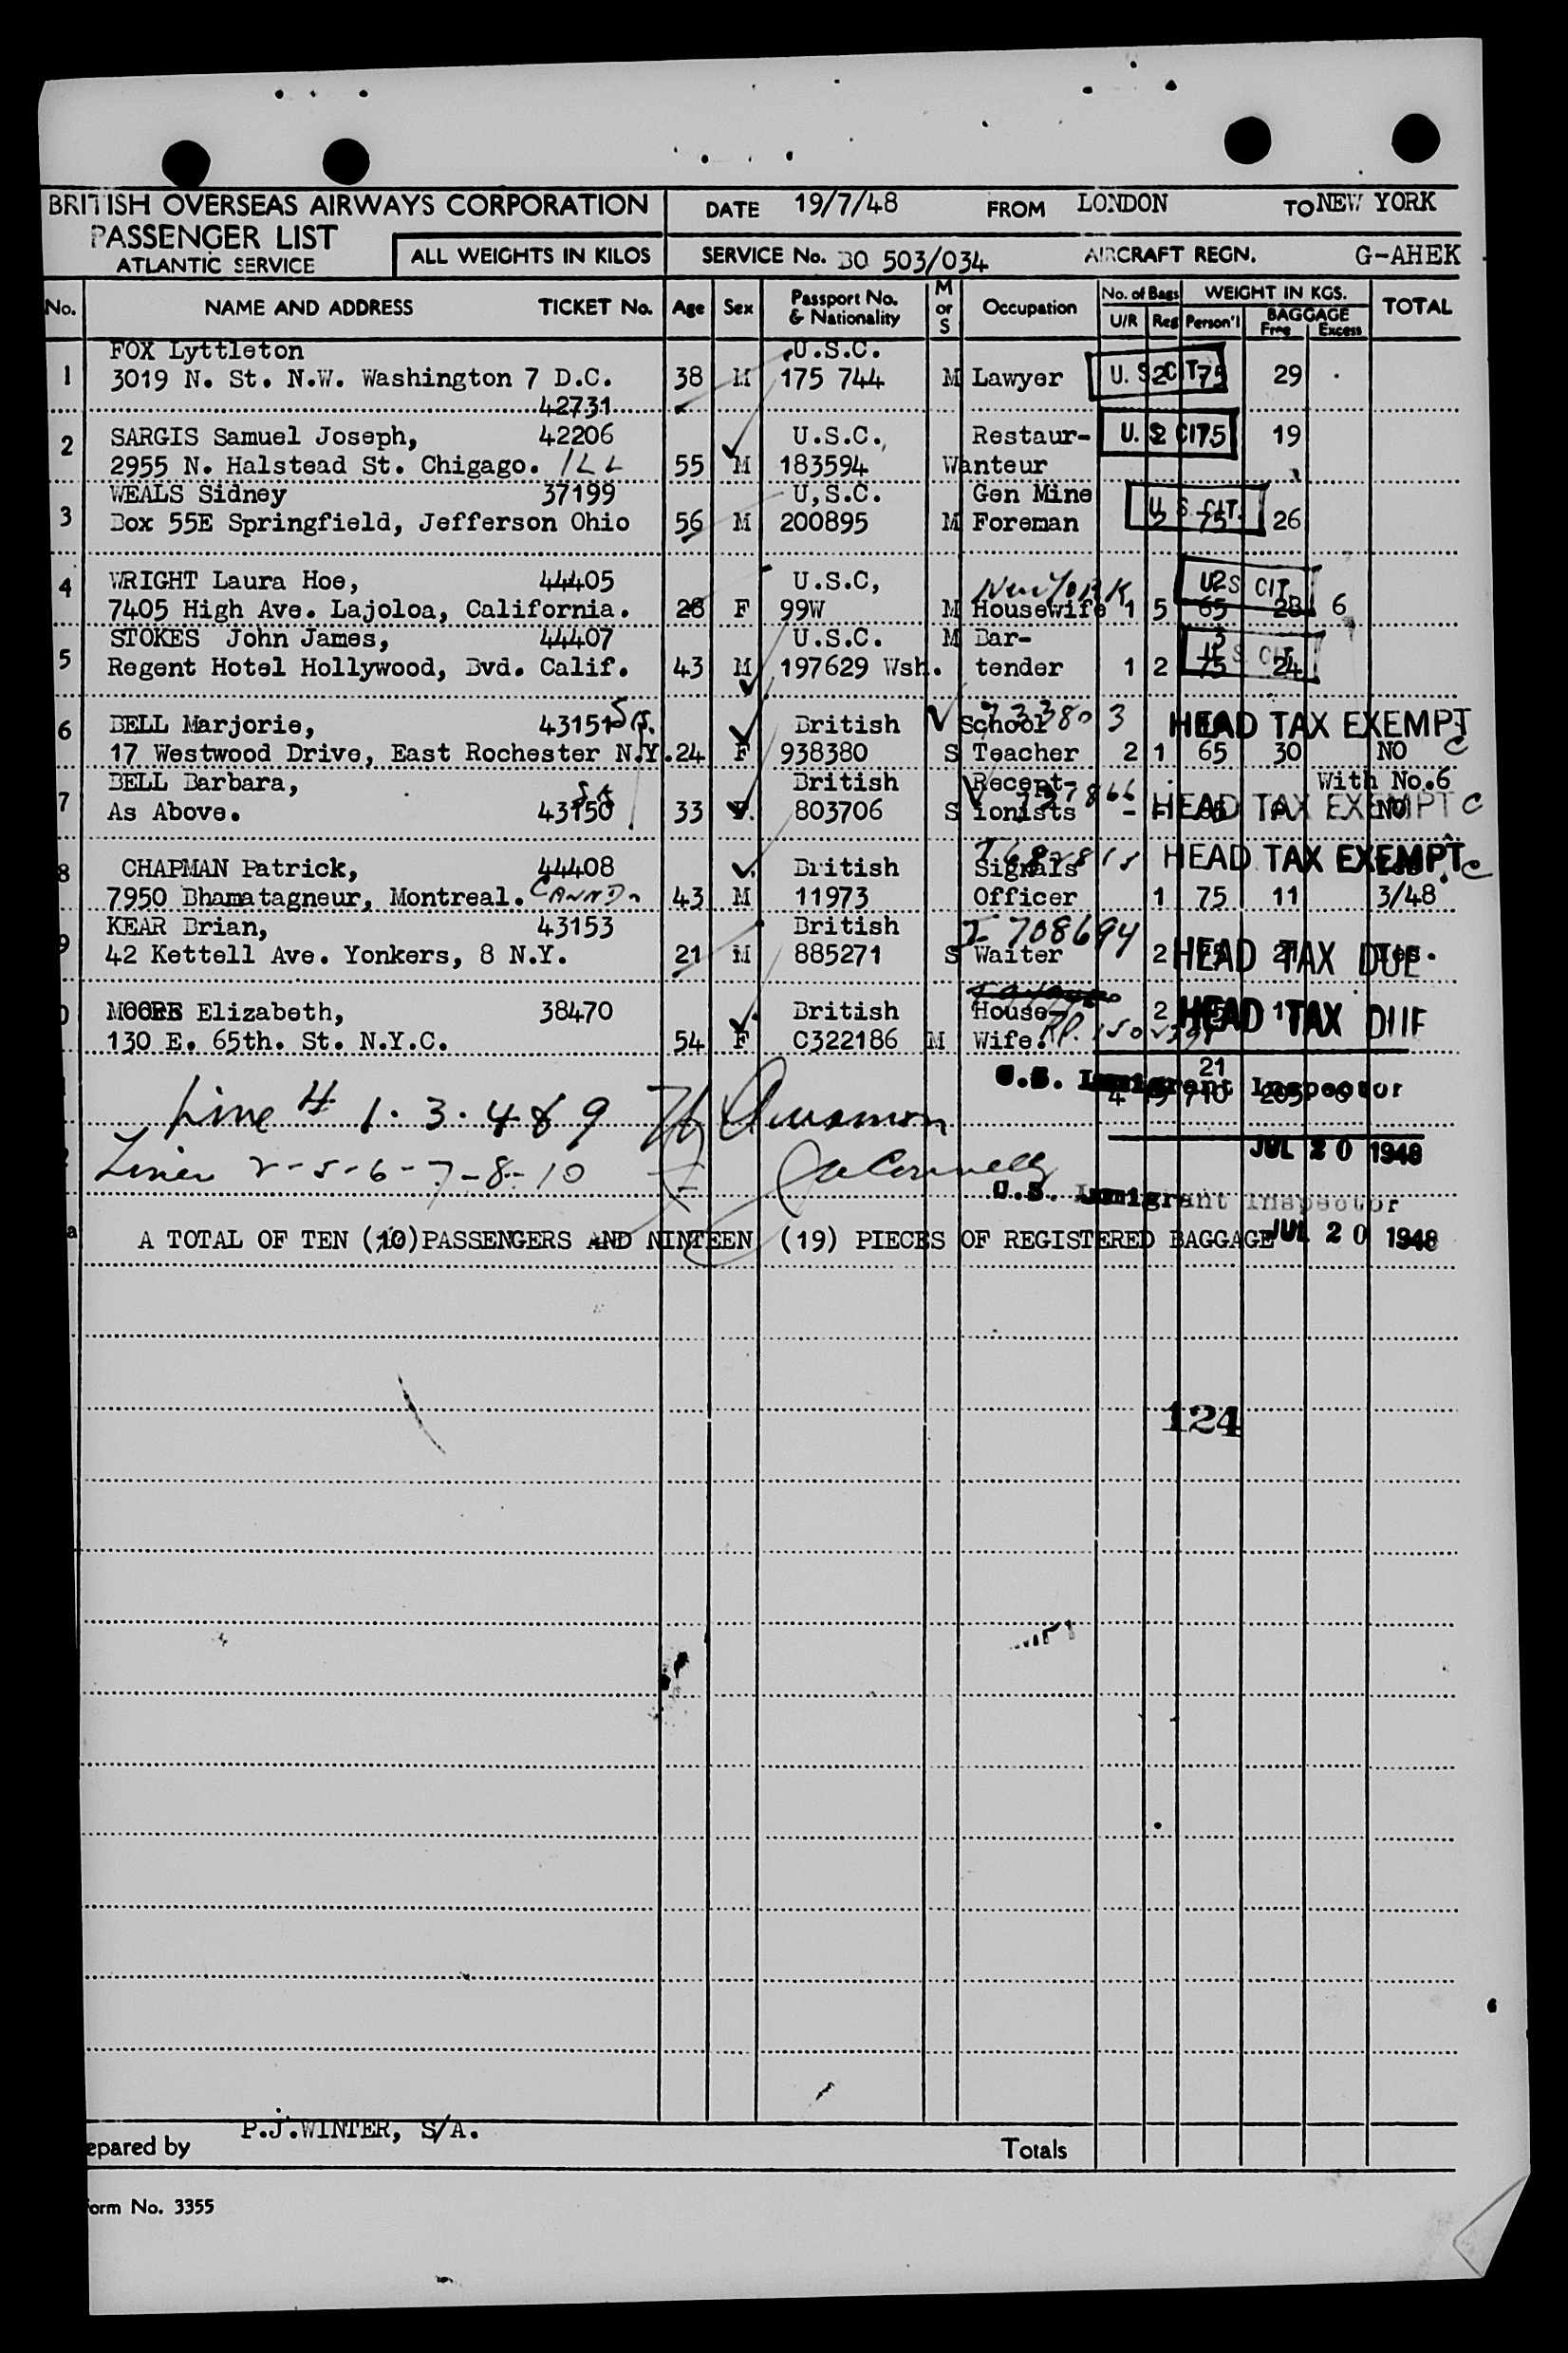 BRITISH OVERSEAS AIRWAYS CORPORATION
PASSENGER LIST
ATLANTIC SERVICE
ALL WEIGHTS IN KILOS
DATE 19/7/48 FROM LONDON TO NEW YORK
SERVICE No. BO 503/034 AIRCRAFT REGN. G-AHEK
No. NAME AND ADDRESS TICKET No. Age Sex Passport No. & Nationality M or S Occupation No. of Bags U/R Reg WEIGHT IN KGS. Person'l BAGGAGE Free Excess TOTAL
FOX Lyttleton U.S.C.
1 3019 N. St. N.W. Washington 7 D.C. 38 M 175 744 M Lawyer U. S. CIT. 2 75 29
42731
2 SARGIS Samuel Joseph, 42206 U.S.C. Restaur- U. S. CIT. 2 75 19
2955 N. Halstead St. Chigago. ILL 55 M 183594 Wanteur
WEALS Sidney 37199 U,S.C. Gen Mine
3 Box 55E Springfield, Jefferson Ohio 56 M 200895 M Foreman U. S. CIT. 2 75 26
4 WRIGHT Laura Hoe, 44405 U.S.C, New York U. S. CIT.
7405 High Ave. Lajoloa, California. 28 F 99W M Housewife 1 5 65 28 6
STOKES John James, 44407 U.S.C. M Bar-
5 Regent Hotel Hollywood, Bvd. Calif. 43 M 197629 Wsh. tender 1 2 75 24 U. S. CIT.
6 BELL Marjorie, 43151 British School HEAD TAX EXEMPT
17 Westwood Drive, East Rochester N.Y. 24 F 938380 S Teacher 2 1 65 30 NO C
BELL Barbara, British Recept- With No.6
7 As Above. 43150 33 F. 803706 S ionists - - 65 HEAD TAX EXEMPT NO C
8 CHAPMAN Patrick, 44408 British Signals HEAD TAX EXEMPT C
7950 Bhamatagneur, Montreal. CANADA 43 M 11973 Officer 1 75 11 3/48
KEAR Brian, 43153 British I 708694
9 42 Kettell Ave. Yonkers, 8 N.Y. 21 M 885271 S Waiter 2 75 21 HEAD TAX DUE Yes.
MOORE Elizabeth, 38470 British House- 2 HEAD TAX DUE
130 E. 65th. St. N.Y.C. 54 F C322186 M Wife.
21
U.S. Immigrant Inspector
4 19 710 205 6
Line # 1. 3. 4 & 9
JUL 20 1948
Lines 2-5-6-7-8-10
U.S. Immigrant Inspector
A TOTAL OF TEN (10)PASSENGERS AND NINTEEN (19) PIECES OF REGISTERED BAGGAGE JUL 20 1948
124
P.J.WINTER, S/A.
epared by Totals
Form No. 3355